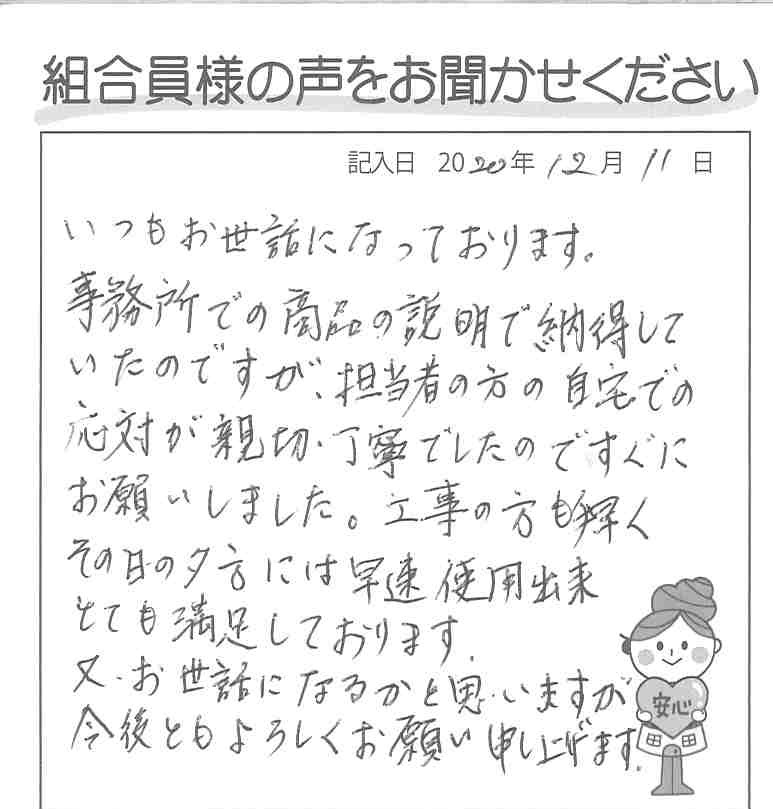 組合員様の声をお聞かせください
記入日 2020年 12月 11日
いつもお世話になっております。
事務所での商品の説明で納得して
いたのですが、担当者の方の自宅での
応対が親切、丁寧でしたのですぐに
お願いしました。工事の方も
その日の夕方には早速使用出来
とても満足しております。
又、お世話になるかと思いますが
今後ともよろしくお願い申し上げます。
安心